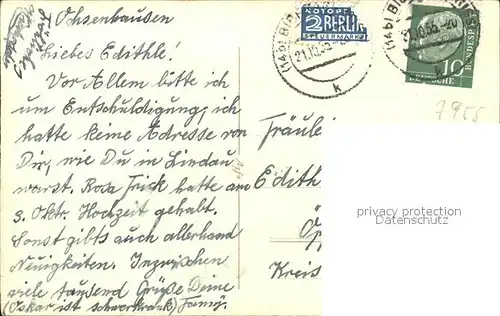 Ochsenhausen
Liebes Edithle!
Vor Allem bitte ich
um Entschuldigung, ich
hatte keine Adresse von
Dir, wie Du in Lindau
warst. Rosa Frick hatte am
3. Oktr. Hochzeit gehalt.
Sonst gibts auch allerhand
Neuigkeiten. Inzwischen
viele tausend Grüße Deine
(Oskar ist schwerkrank) Fanny.
NOTOPFER
2 BERLIN
STEUERMARKE
21.10.55
k
10
DEUTSCHE BUNDESPOST
7955
Fräulein
Edith
Kreis
privacy protection